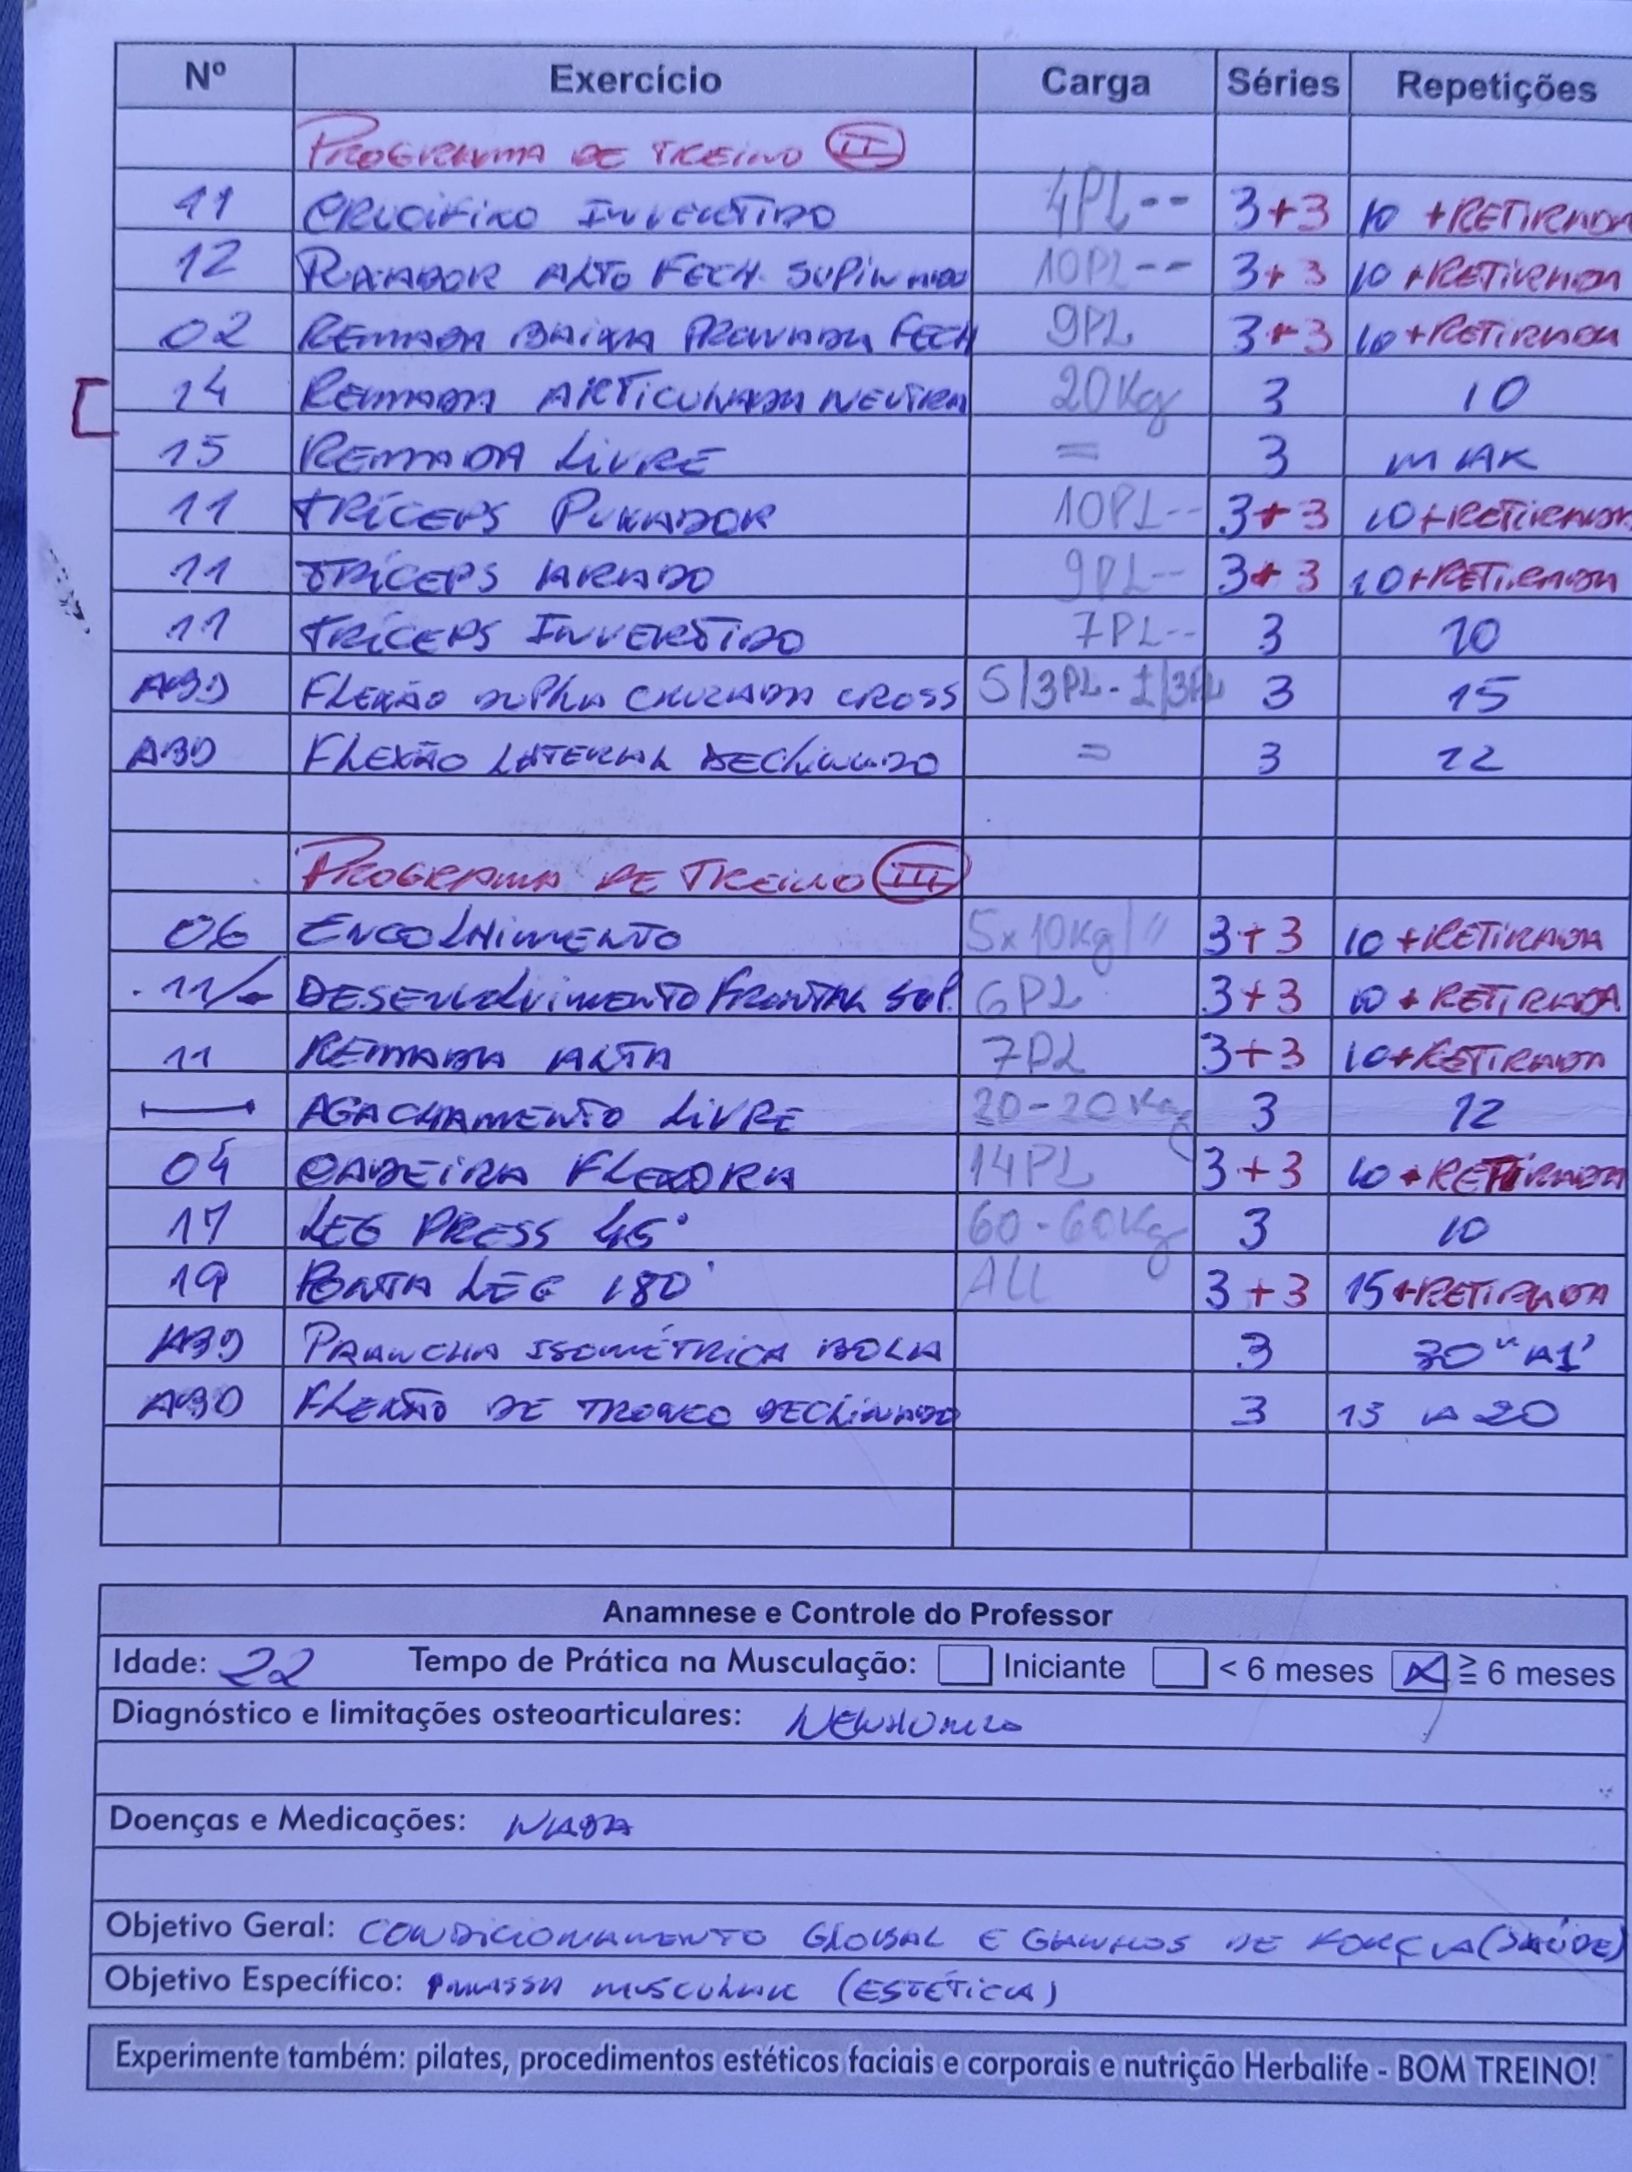 Nº Exercício Carga Séries Repetições
PROGRAMA DE TREINO II
11 CRUCIFIXO INVERTIDO 4PL-- 3+3 10 +RETIRADA
12 PUXADOR ALTO FECH. SUPINADO 10PL-- 3+3 10 +RETIRADA
02 REMADA BAIXA PRONADA FECH 9PL 3+3 10 +RETIRADA
14 REMADA ARTICULADA NEUTRA 20Kg 3 10
15 REMADA LIVRE = 3 MAX
11 TRÍCEPS PUXADOR 10PL-- 3+3 10+RETIRADA
11 TRÍCEPS ARADO 9PL-- 3+3 10+RETIRADA
11 TRÍCEPS INVERTIDO 7PL-- 3 10
ABD FLEXÃO DUPLA CRUZADA CROSS 3 15
ABD FLEXÃO LATERAL DECLINADO = 3 12
PROGRAMA DE TREINO III
06 ENCOLHIMENTO 5x10Kg/" 3+3 10 +RETIRADA
11/ DESENVOLVIMENTO FRONTAL SUP. 6PL 3+3 10 + RETIRADA
11 REMADA ALTA 7PL 3+3 10+RETIRADA
AGACHAMENTO LIVRE 20-20Kg 3 12
04 CADEIRA FLEXORA 14PL 3+3 10 +RETIRADA
17 LEG PRESS 45° 60-60Kg 3 10
19 PONTA LEG 180° ALL 3+3 15+RETIRADA
ABD PRANCHA ISOMÉTRICA BOLA 3 30" A 1'
ABD FLEXÃO DE TRONCO DECLINADO 3 15 A 20
Anamnese e Controle do Professor
Idade: 22 Tempo de Prática na Musculação: Iniciante < 6 meses X ≧ 6 meses
Diagnóstico e limitações osteoarticulares: NENHUMA
Doenças e Medicações: NADA
Objetivo Geral: CONDICIONAMENTO GLOBAL E GANHOS DE FORÇA (SAÚDE)
Objetivo Específico: MASSA MUSCULAR (ESTÉTICA)
Experimente também: pilates, procedimentos estéticos faciais e corporais e nutrição Herbalife - BOM TREINO!